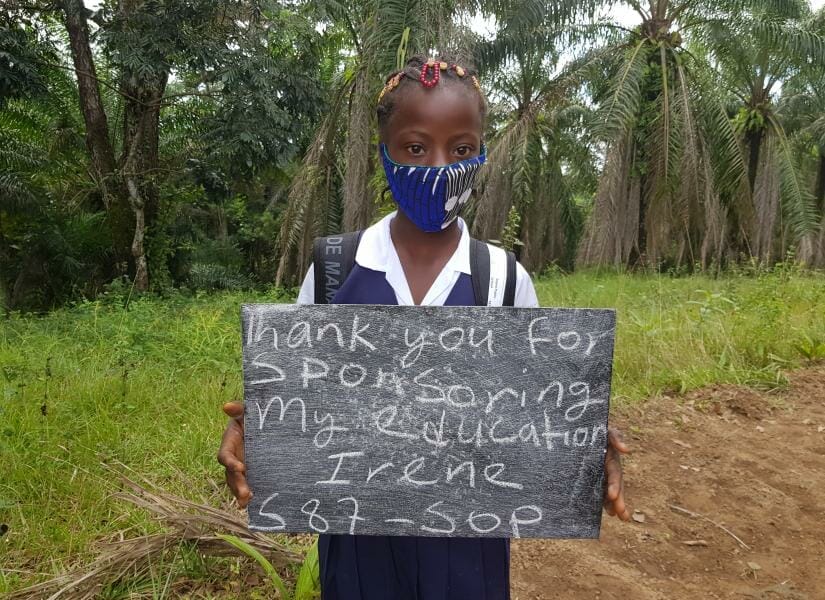 Thank you for
Sponsoring
My education
Irene
S87-SOP
DE MAM